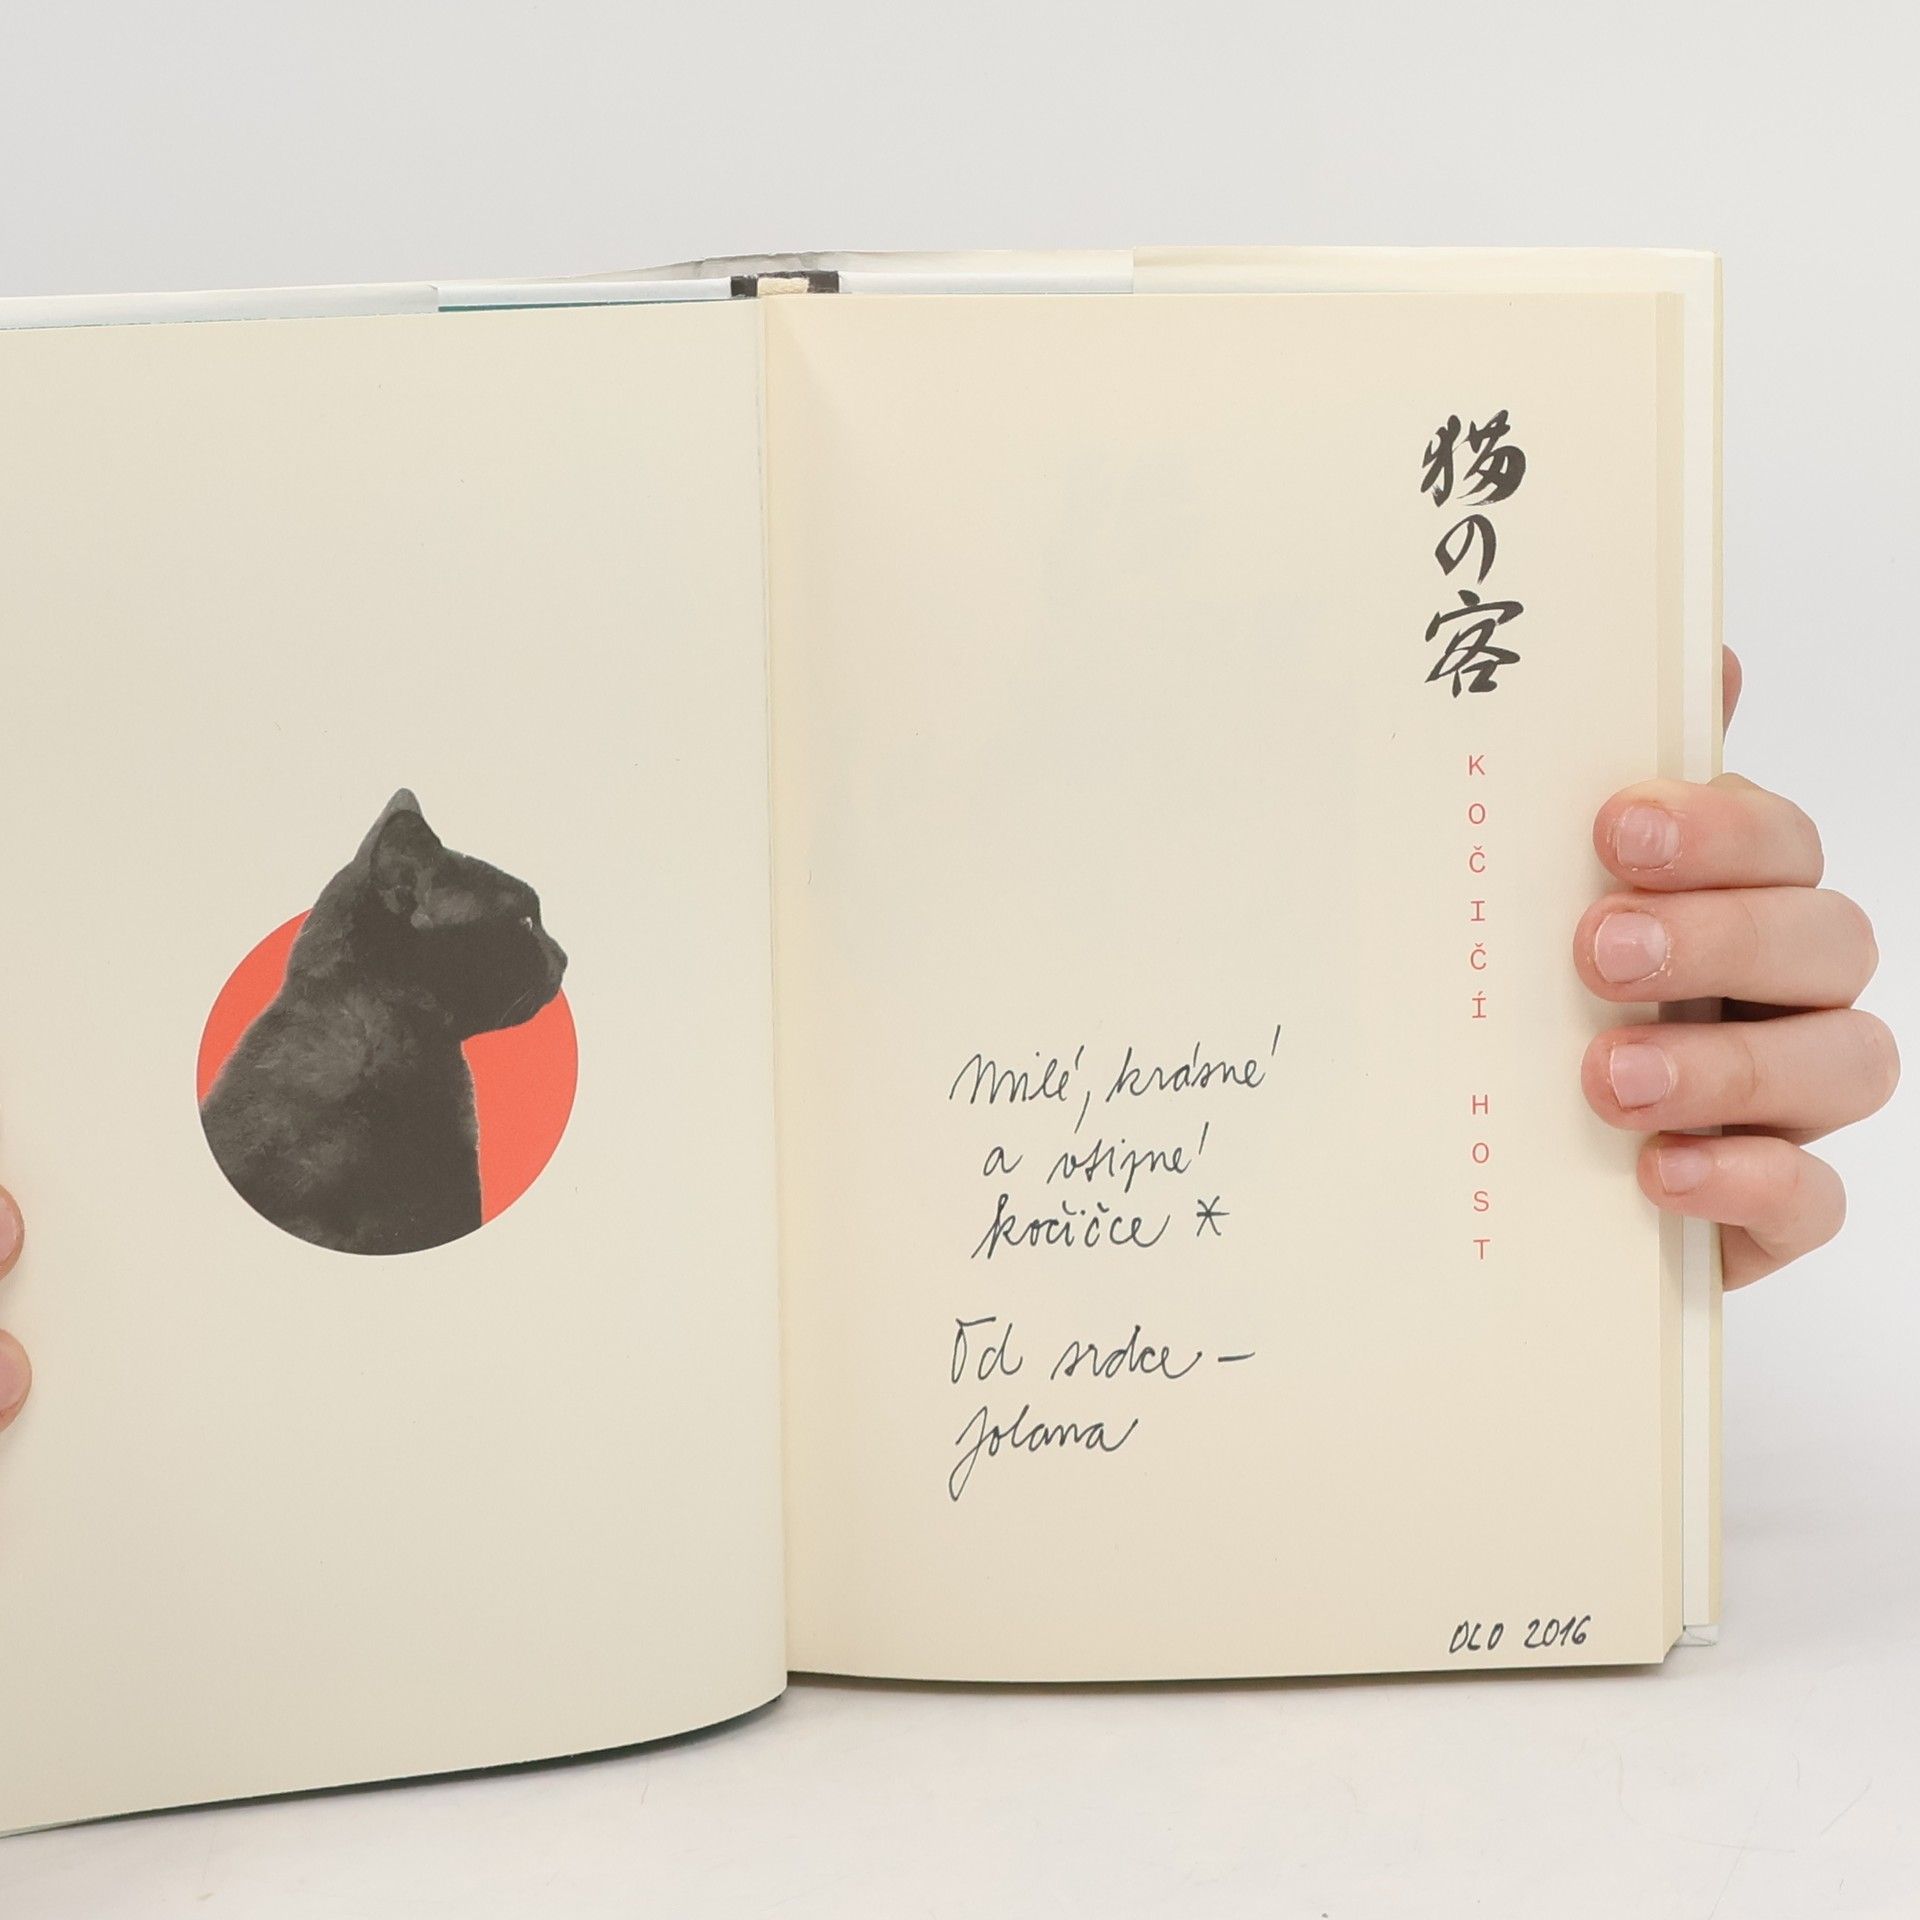 猫の客
KOČIČÍ HOST
Milé, krásné
a vtipné
kočičce *
Od srdce –
Jolana
OLO 2016